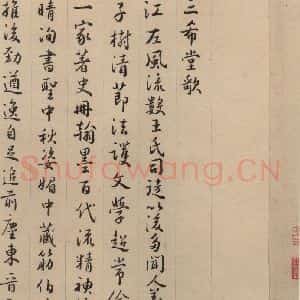 三希堂歌
江左風流數王氏司徒以後多聞人
子樹清節法護文學超常倫
一家著史冊翰墨百代流精神
晴洵書聖中秋姿媚中藏筋伯
擁後勁遒逸自足追前塵東晉
Shufawang.CN